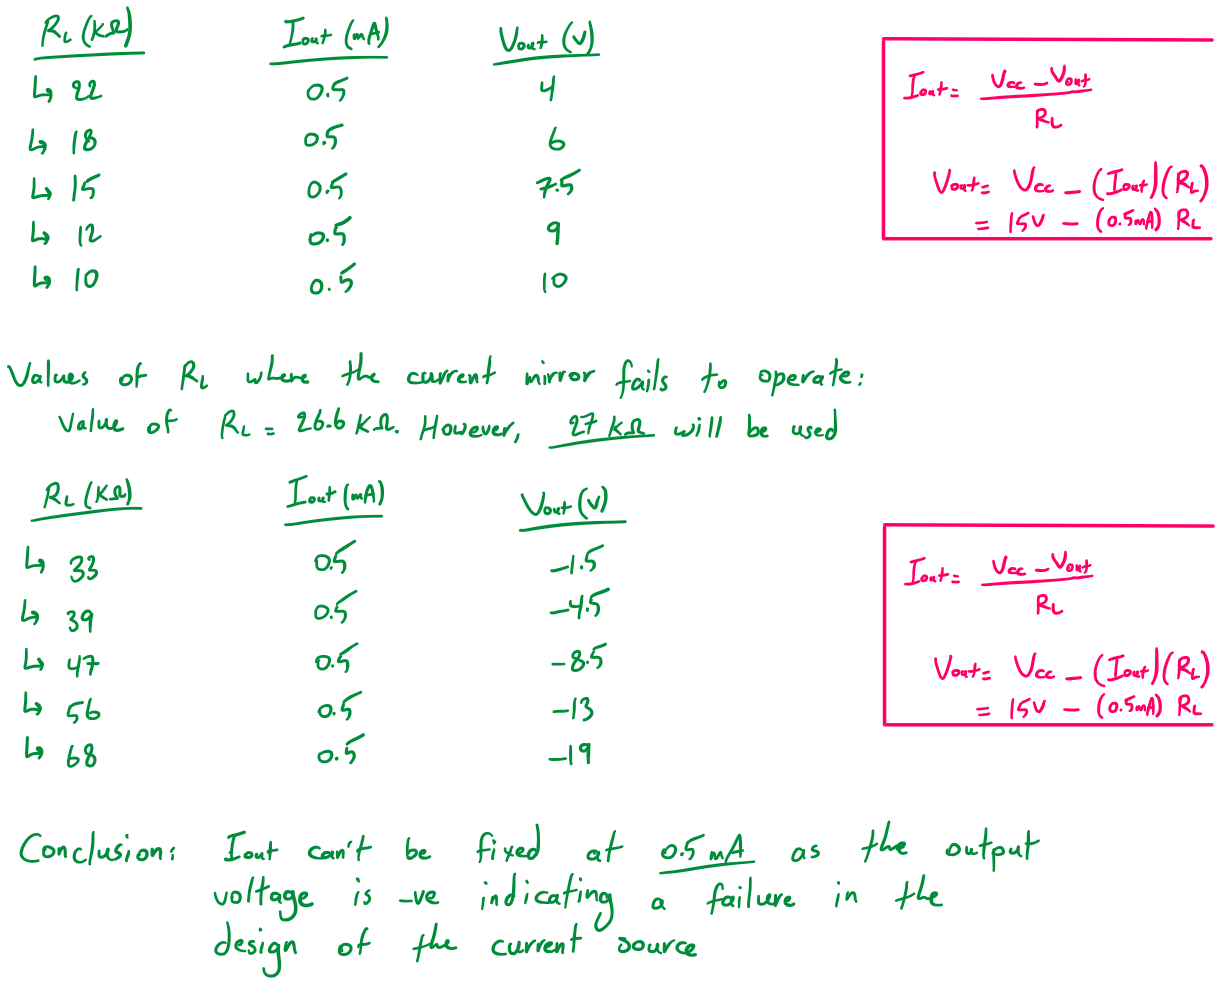 RL (KΩ) Iout (mA) Vout (V)
↳ 22 0.5 4
↳ 18 0.5 6
↳ 15 0.5 7.5
↳ 12 0.5 9
↳ 10 0.5 10
Iout = Vcc - Vout
RL
Vout = Vcc - (Iout)(RL)
= 15V - (0.5mA) RL
Values of RL where the current mirror fails to operate:
Value of RL = 26.6 KΩ. However, 27 KΩ will be used
RL (KΩ) Iout (mA) Vout (V)
↳ 33 0.5 -1.5
↳ 39 0.5 -4.5
↳ 47 0.5 -8.5
↳ 56 0.5 -13
↳ 68 0.5 -19
Iout = Vcc - Vout
RL
Vout = Vcc - (Iout)(RL)
= 15V - (0.5mA) RL
Conclusion: Iout can't be fixed at 0.5 mA as the output
voltage is -ve indicating a failure in the
design of the current source